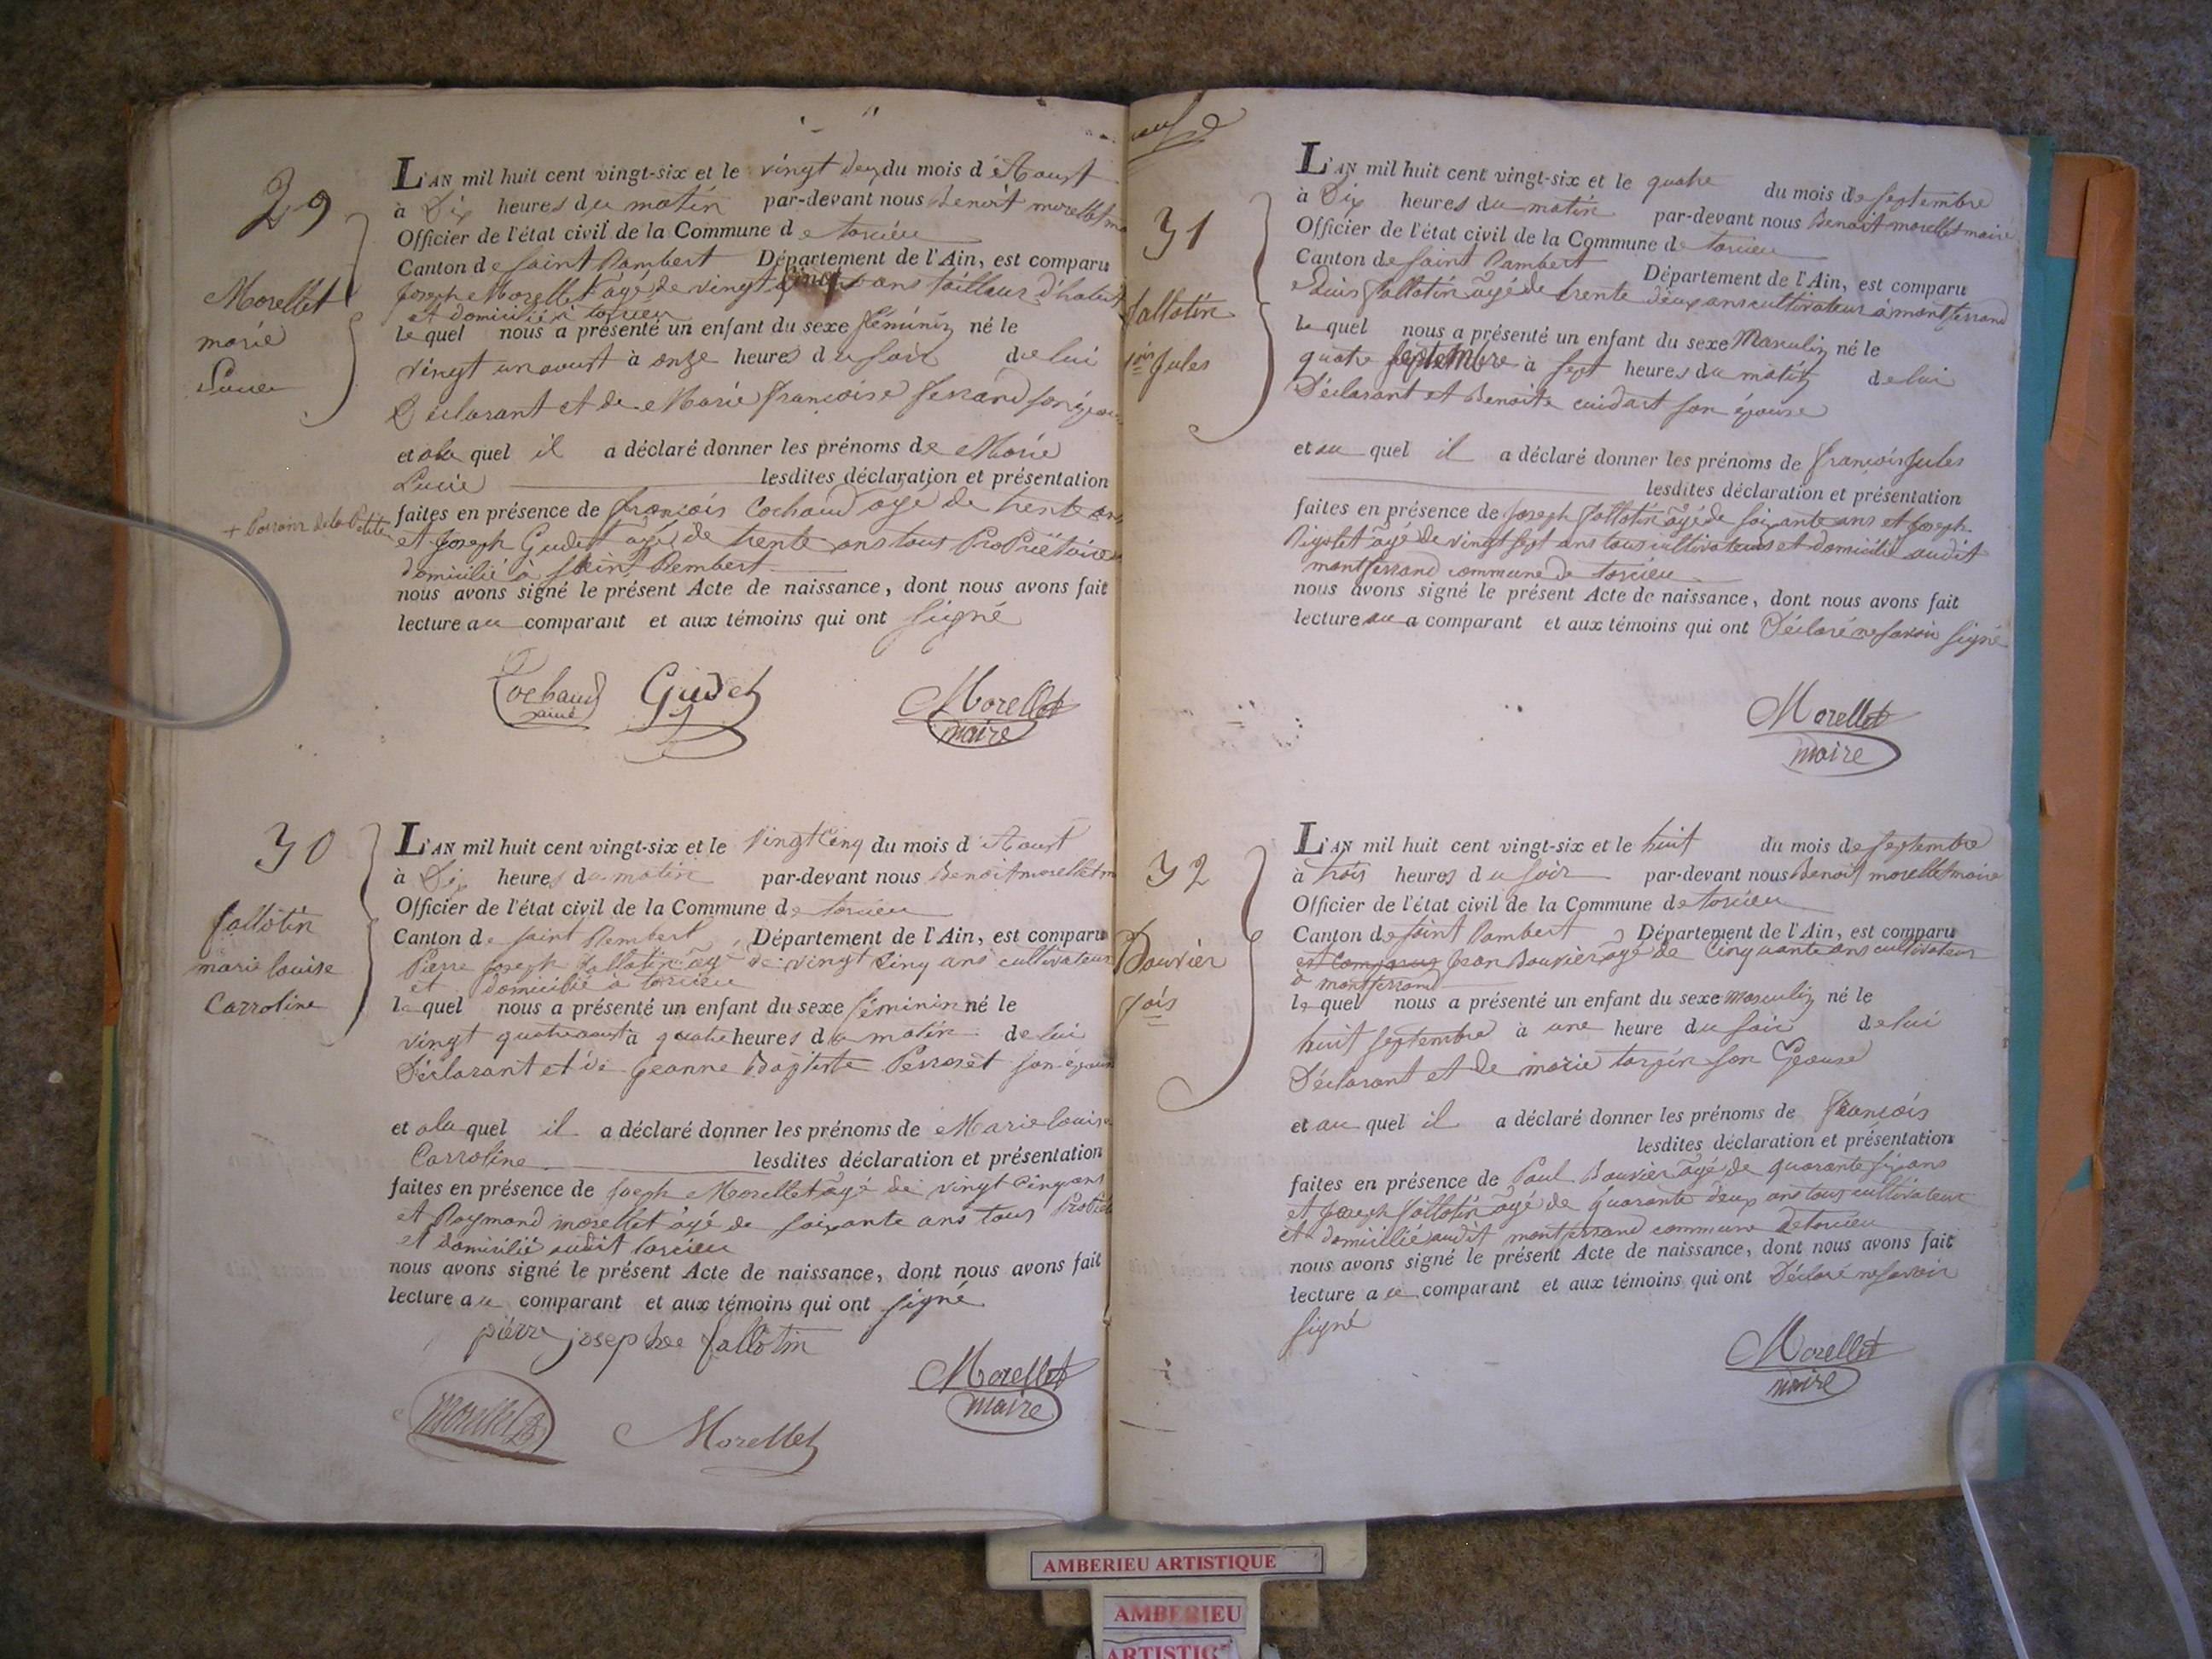 29
Morellet
marie
Lucie
L'AN mil huit cent vingt-six et le vingt deux du mois d'Aoust
à Dix heures du matin par-devant nous Benoit morellet
Officier de l'état civil de la Commune de torcieu
Canton de saint Rambert Département de l'Ain, est comparu
Joseph Morellet agé de vingt cinq ans tailleur d'habit
et domicilié à torcieu
lequel nous a présenté un enfant du sexe féminin né le
vingt un aoust à onze heures du soir de lui
Déclarant et de Marie françoise ferrand son épouse
et ala quel il a déclaré donner les prénoms de Marie
Lucie lesdites déclaration et présentation
+ Parrain de la Petite
faites en présence de françois Cochaud agé de trente ans
et Joseph Gudet agé de trente ans tous ProPriétaires
domicilié à saint Rembert
nous avons signé le présent Acte de naissance, dont nous avons fait
lecture au comparant et aux témoins qui ont signé
Cochaud ainé Gudet Morellet
maire
30
fallotin
marie louise
Carroline
L'AN mil huit cent vingt-six et le vingt Cinq du mois d'Aoust
à Dix heures du matin par-devant nous Benoit morellet
Officier de l'état civil de la Commune de torcieu
Canton de saint Rembert, Département de l'Ain, est comparu
Pierre Joseph fallotin agé de vingt Cinq ans cultivateur
et domicilié à torcieu
lequel nous a présenté un enfant du sexe féminin né le
vingt quatre aoust à quatre heures du matin de lui
Déclarant et de Jeanne Baptiste Perroset son épouse
et ala quel il a déclaré donner les prénoms de Marie louise
Carroline lesdites déclaration et présentation
faites en présence de Joseph Morellet agé de vingt Cinq ans
et Raymond morellet agé de soixante ans tous
et domicilié audit torcieu
nous avons signé le présent Acte de naissance, dont nous avons fait
lecture au comparant et aux témoins qui ont signé
pierre josephee fallotin
Morellet
maire
Morellet
31
fallotin
Jules
L'AN mil huit cent vingt-six et le quatre du mois de septembre
à Dix heures du matin par-devant nous Benoit morellet maire
Officier de l'état civil de la Commune de torcieu
Canton de saint Rambert Département de l'Ain, est comparu
Louis fallotin agé de trente deux ans cultivateur à montferrand
lequel nous a présenté un enfant du sexe Masculin né le
quatre septembre à sept heures du matin de lui
Déclarant et Benoite cuidart son épouse
et au quel il a déclaré donner les prénoms de françois Jules
lesdites déclaration et présentation
faites en présence de Joseph fallotin agé de soixante ans et Joseph
Rigolet agé de vingt sept ans tous cultivateurs et domicilié audit
montferrand commune de torcieu
nous avons signé le présent Acte de naissance, dont nous avons fait
lecture au comparant et aux témoins qui ont Déclaré ne savoir signé
Morellet
maire
32
Bouvier
L'AN mil huit cent vingt-six et le huit du mois de septembre
à trois heures du soir par-devant nous Benoit morellet maire
Officier de l'état civil de la Commune de torcieu
Canton de saint Rambert, Département de l'Ain, est comparu
est Comparus Jean Bouvier agé de Cinquante ans cultivateur
à montferrand
lequel nous a présenté un enfant du sexe masculin né le
huit septembre à une heure du soir de lui
Déclarant et de marie targin son Epouse
et au quel il a déclaré donner les prénoms de françois
lesdites déclaration et présentation
faites en présence de Paul Bouvier agé de quarante six ans
et Joseph fallotin agé de quarante deux ans tous cultivateur
et domicilié audit montferrand commune De torcieu
nous avons signé le présent Acte de naissance, dont nous avons fait
lecture au comparant et aux témoins qui ont Déclaré ne savoir
signé
Morellet
maire
AMBERIEU ARTISTIQUE
AMBERIEU